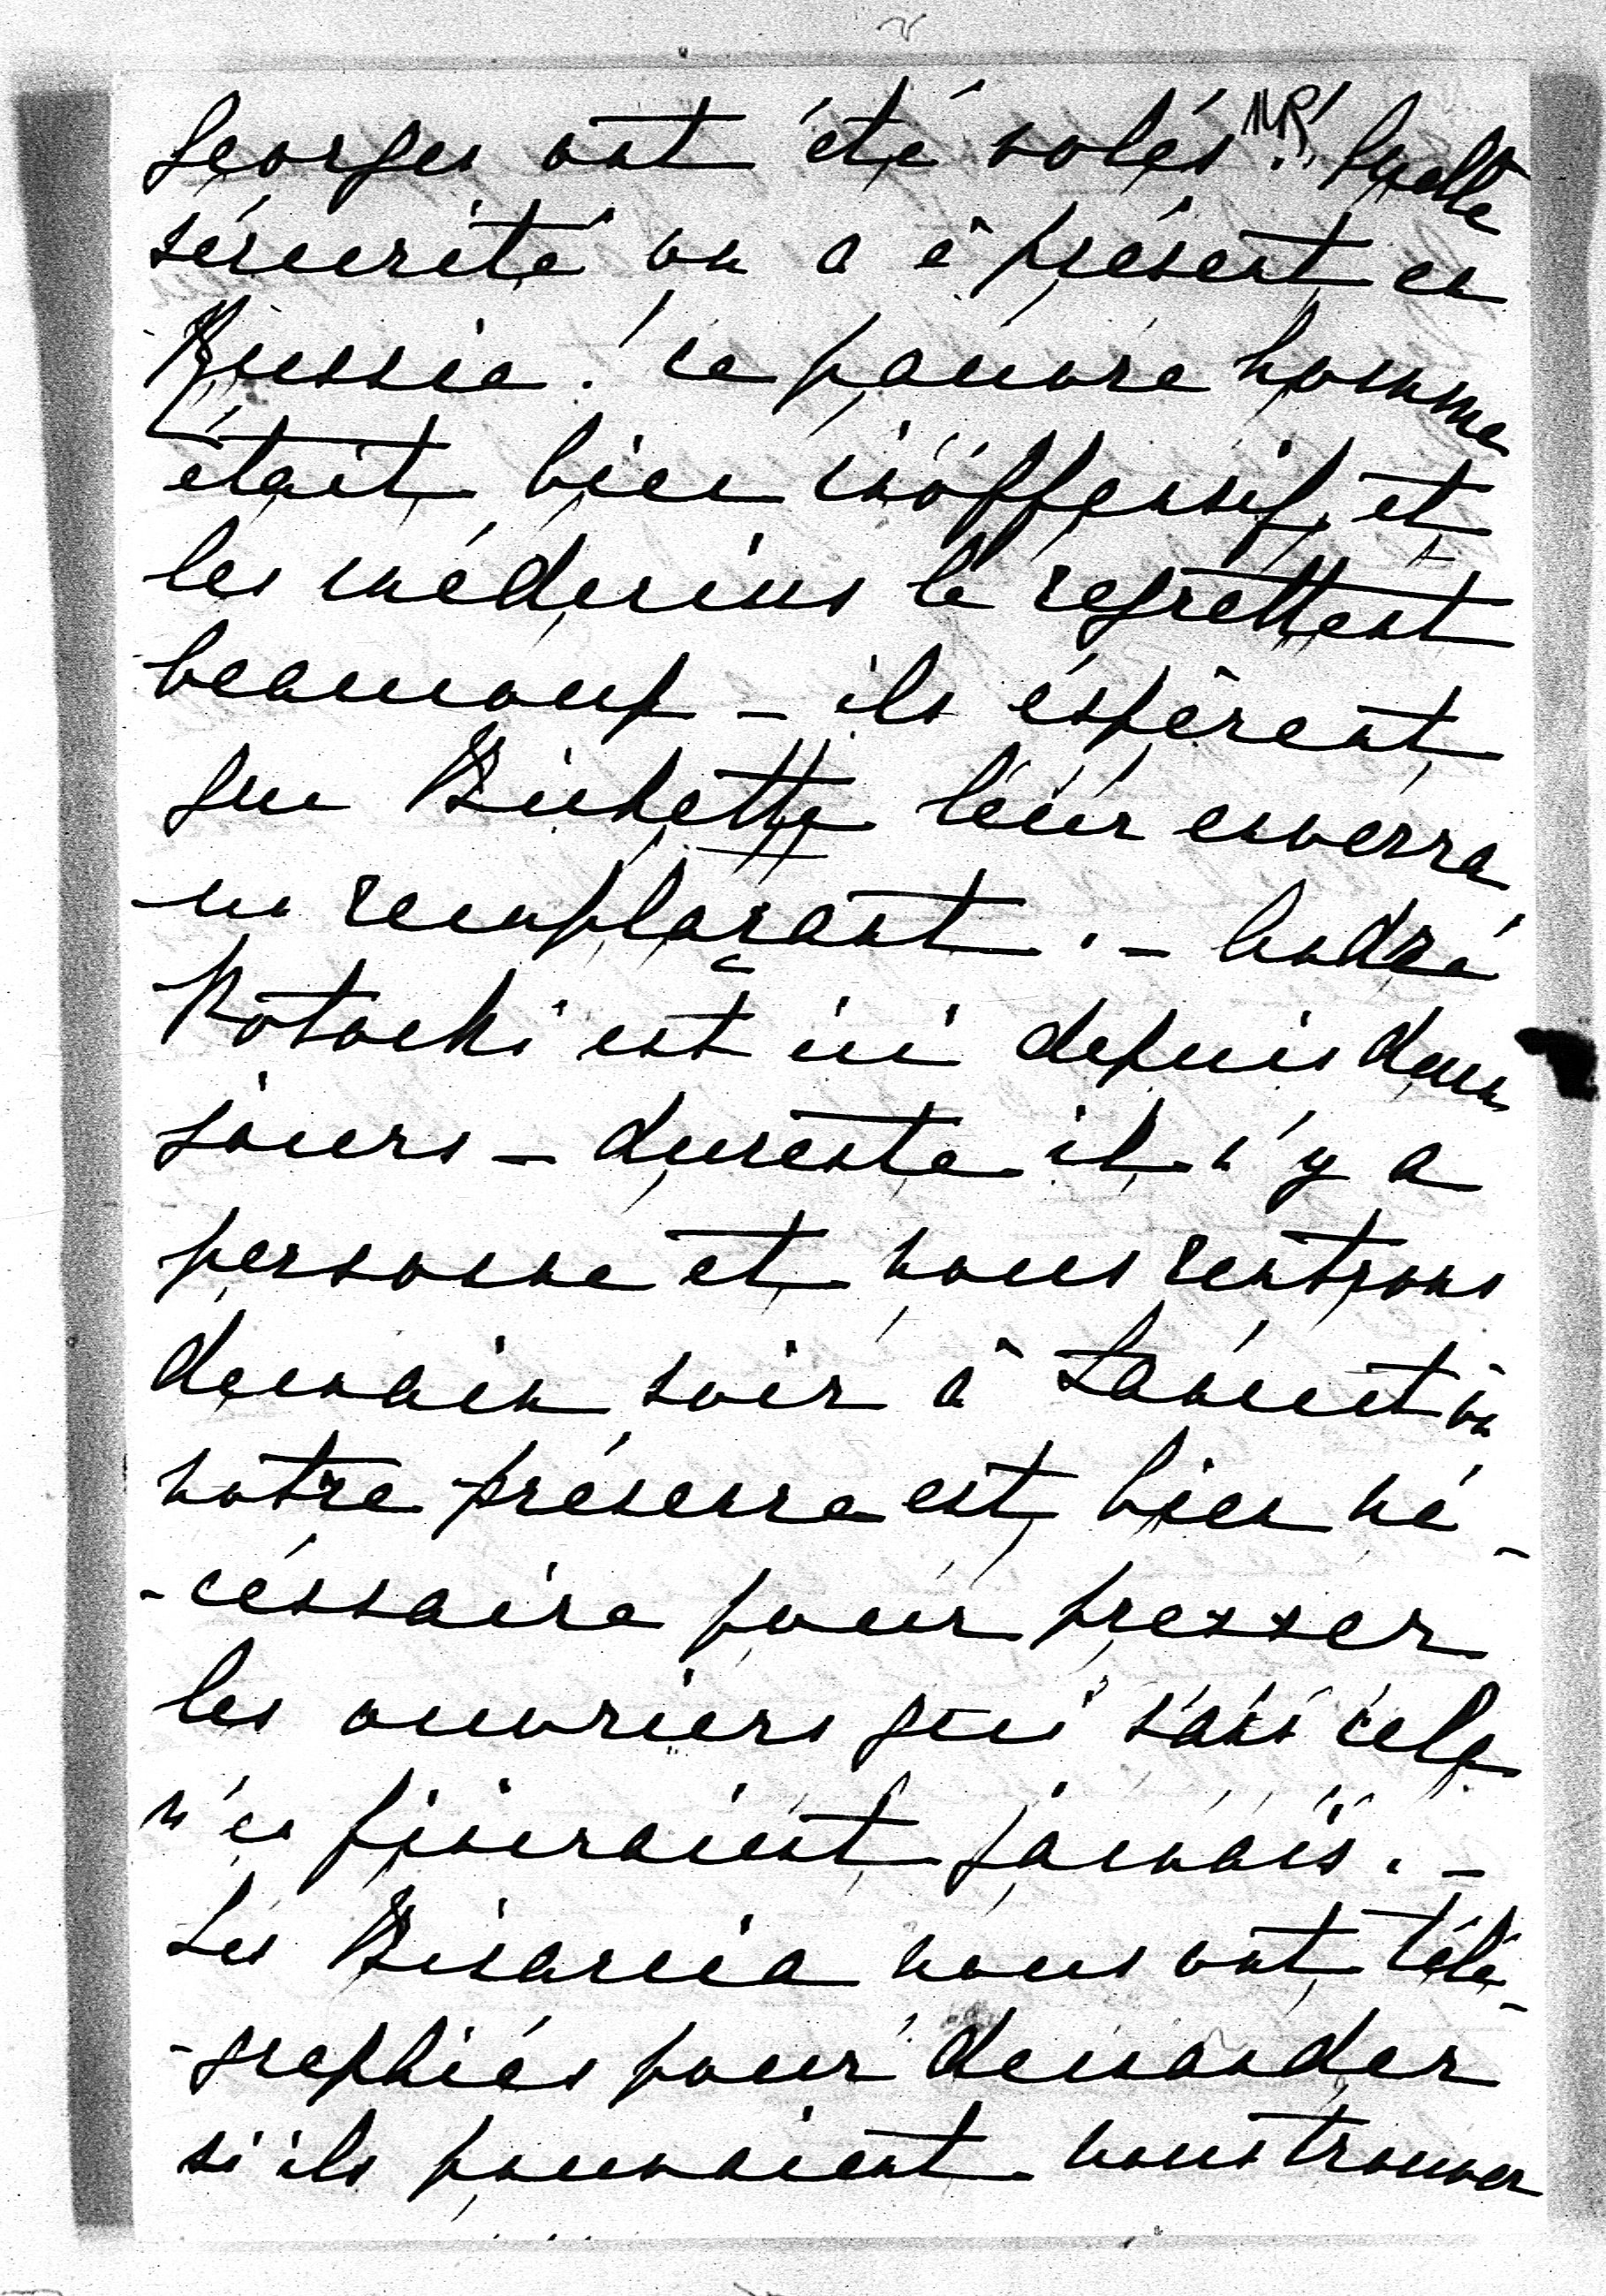 Georges ont été volés! Quelle
sécurité on a à présent en
Russie! ce pauvre homme
était bien inoffensif, et
les médecins le regrettent
beaucoup – ils éspèrent
que Bichette leur enverra
un remplaçant. – André
Potocki est ici depuis deux
jours – dureste il n'y a
personne et nous rentrons
demain soir à Lancut où
notre présence est bien né-
-céssaire pour presser
les ouvriers qui sans cela
n'en finiraient jamais. –
Les Bisaccia nous ont télé-
-graphiés pour demander
si ils pouvaient nous trouver